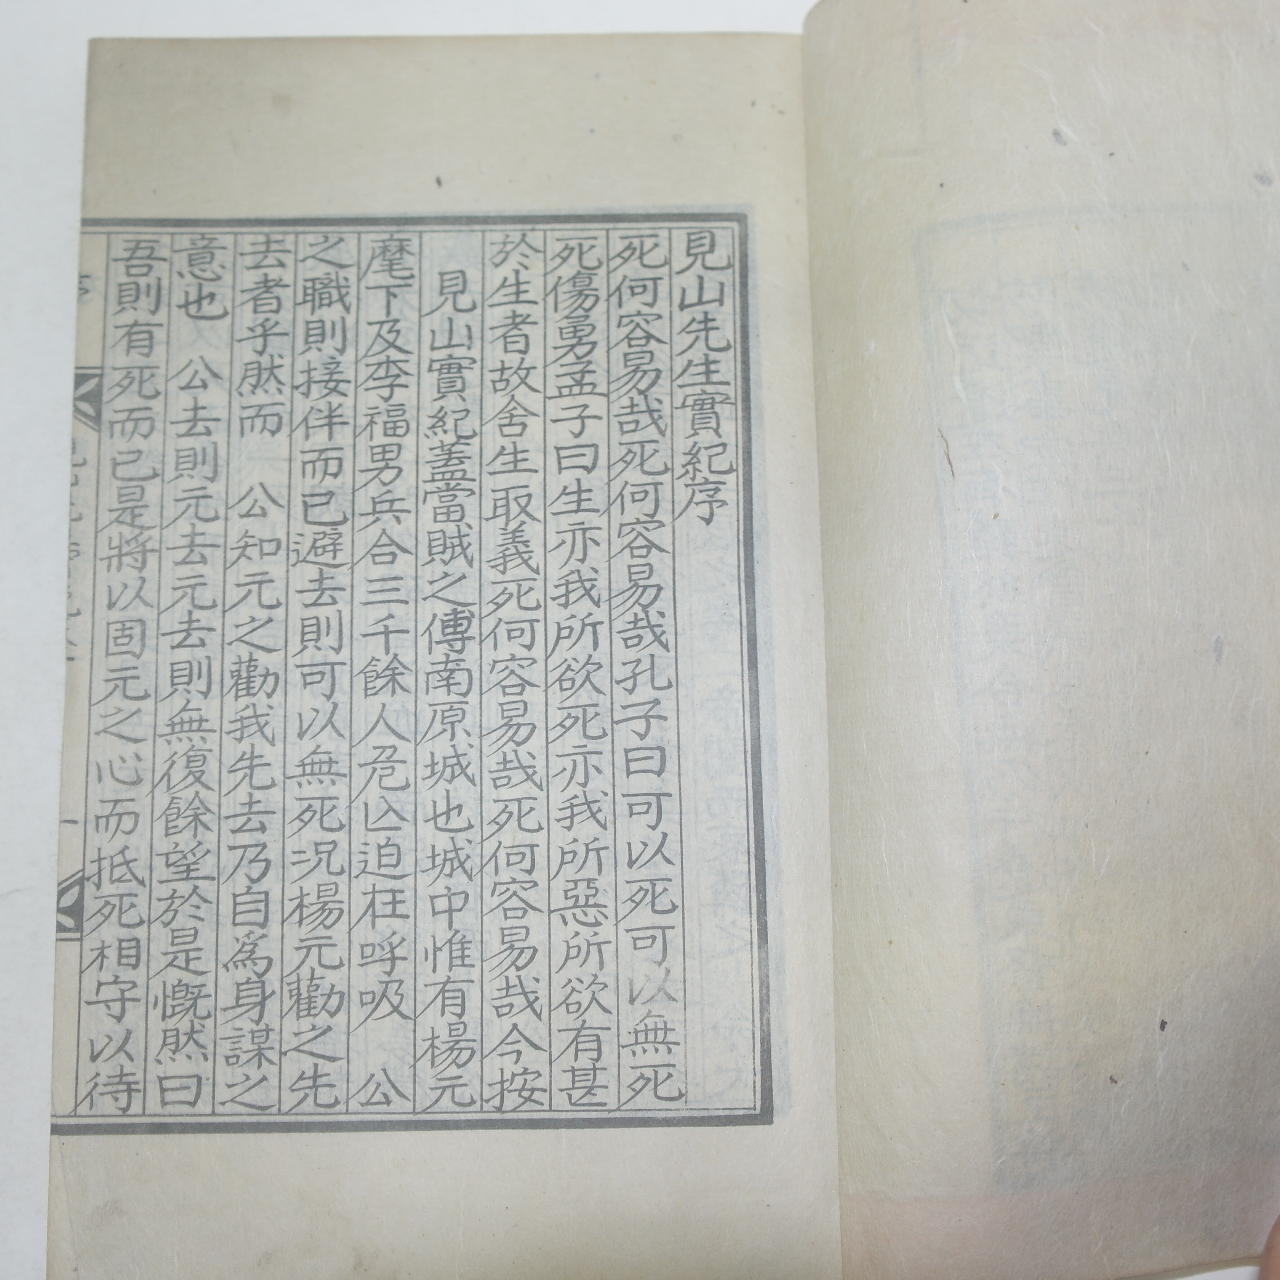 見山先生實紀序
死何容易哉死何容易哉孔子曰可以死可以無死
死傷勇孟子曰生亦我所欲死亦我所惡所欲有甚
於生者故舍生取義死何容易哉死何容易哉今按
見山實紀蓋當賊之傳南原城也城中惟有楊元
麾下及李福男兵合三千餘人危亾迫在呼吸 公
之職則接伴而已避去則可以無死况楊元勸之先
去者乎然而 公知元之勸我先去乃自爲身謀之
意也 公去則元去元去則無復餘望於是慨然曰
吾則有死而已是將以固元之心而抵死相守以待
序